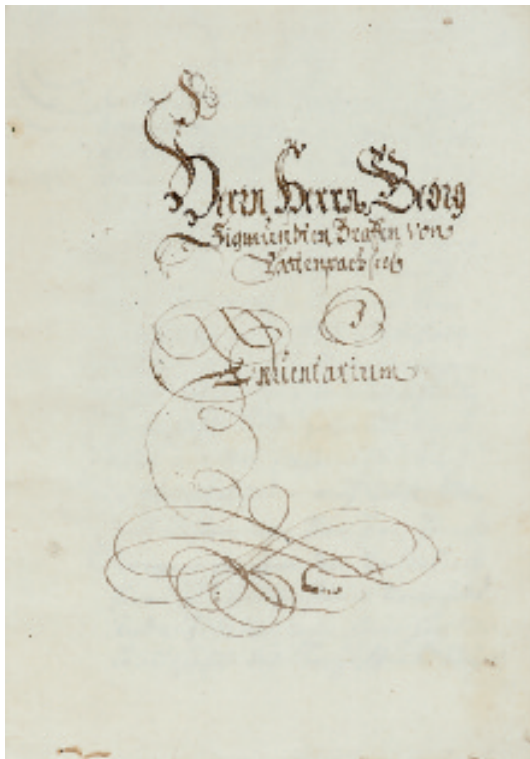 Herrn Herrn Georg
Sigmundten Graffen von
Inuentarium